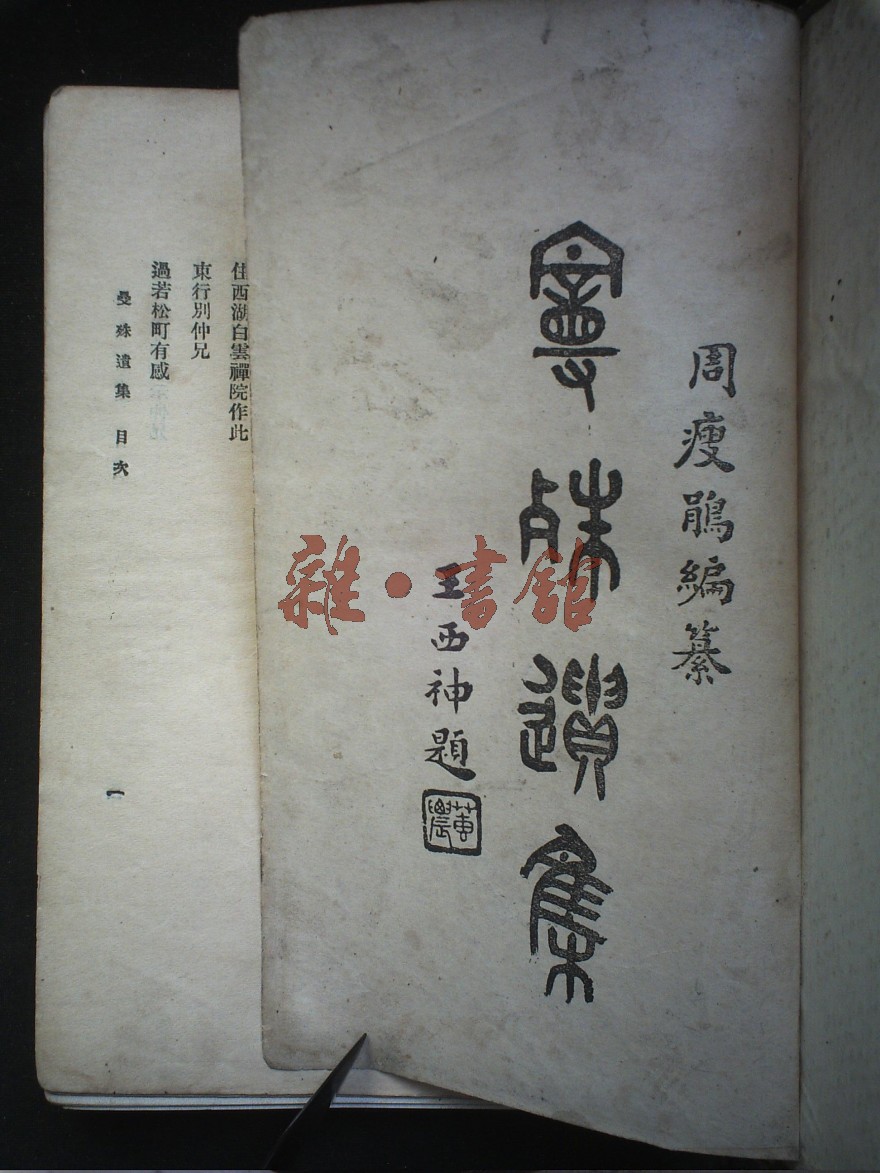 周瘦鵑編纂
曼殊遺集
王西神題
雜·書館
住西湖白雲禪院作此
東行別仲兄
過若松町有感
曼殊遺集 目次
一